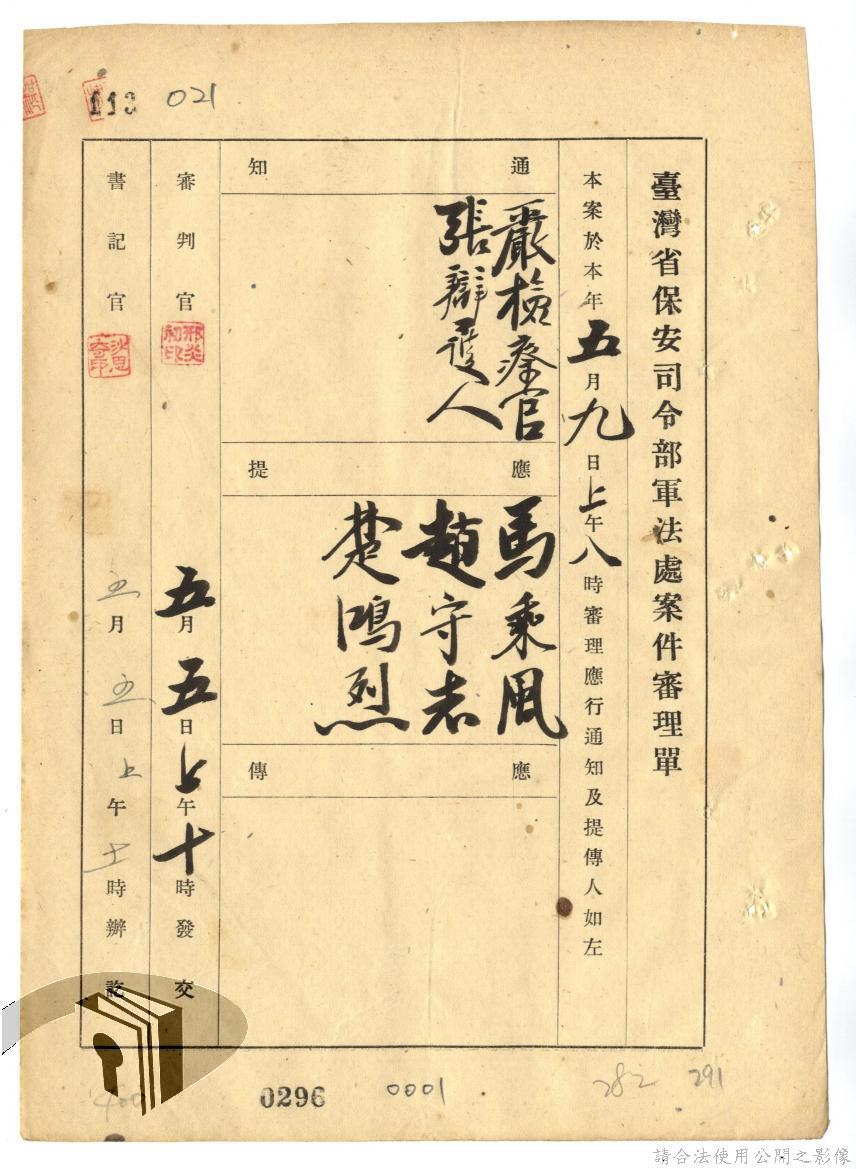 113 021
臺灣省保安司令部軍法處案件審理單
本案於本年五月九日上午八時審理應行通知及提傳人如左
通知
嚴檢察官
張辯護人
應提
馬乘風
趙守志
楚鴻烈
應傳
審判官 五月五日上午十時發交
書記官 五月五日上午十時辦訖
0296 0001 282 291
請合法使用公開之影像